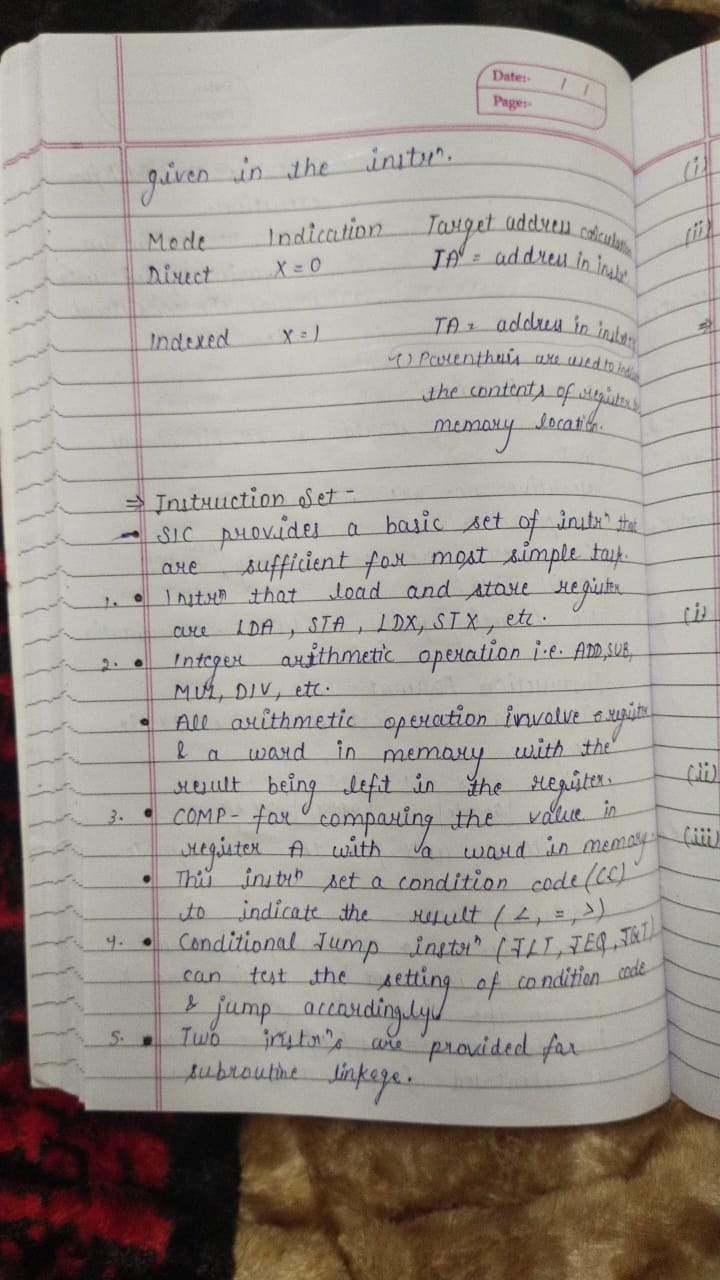 Date:- / /
Page:-
given in the instrn.
Mode Indication Target address calculation
Direct X = 0 TA = address in instrn
Indexed X = 1 TA = address in
() Parenthesis are used to
the contents of register
memory location.
⇒ Instruction Set -
- SIC provides a basic set of instrn that
are sufficient for most simple task.
1. • Instrn that load and store register
are LDA, STA, LDX, STX, etc.
2. • Integer arithmetic operation i.e. ADD, SUB,
MUL, DIV, etc.
• All arithmetic operation involve a register
& a word in memory with the
result being left in the register.
3. • COMP - for comparing the value in
register A with a word in memory.
• This instrn set a condition code (CC)
to indicate the result (<, =, >)
4. • Conditional Jump instrn (JLT, JEQ, JGT)
can test the setting of condition code
& jump accordingly
5. • Two instrn's are provided for
subroutine linkege.
(i)
(ii)
⇒
(i)
(ii)
(iii)